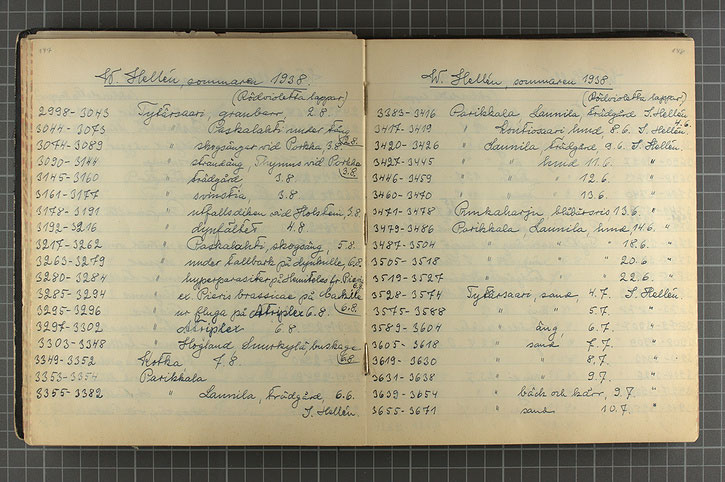 W. Hellén, sommaren 1938
(Rödvioletta lappar)
2998-3043 Tytärsaari, granbarr, 2.8.
3044-3073 " Paskalahti under tång
3074-3089 " skogsånger vid Pokka, 3.8. 2.8.
3090-3144 " strandäng, Thymus vid Pokka
3145-3160 " trädgård 3.8. 3.8.
3161-3177 " svinstia 3.8
3178-3191 " utfallsdiken vid Holstein, 3.8.
3192-3216 " dynfältet 4.8.
3217-3262 " Paskalahti, skogsäng, 5.8.
3263-3279 " under tallbark på dynkulle, 6.8.
3280-3284 " hyperparasiter på Hemiteles fr. Pieris
3285-3294 " ex. Pieris brassicae på
3295-3296 " ur fluga på Atriplex 6.8. 6.8.
3297-3302 " Atriplex 6.8
3303-3348 " Hogland Suurkylä, buskage
3349-3352 Kotka 7.8. 6.8.
3353-3354 Parikkala
3355-3382 " Launila, trädgård, 6.6.
S. Hellén.
W. Hellén, sommaren 1938.
(Rödvioletta lappar)
3383-3416 Parikkala, Launila, trädgård S. Hellén
3417-3419 " lund, 8.6. S. Hellén 7.6.
3420-3426 " Launila, trädgård, 9.6. S. Hellén.
3427-3445 " " lund 11.6. "
3446-3459 " " " 12.6. "
3460-3470 " " " 13.6. "
3471-3478 Punkaharju blåbärsris 13.6. "
3479-3486 Parikkala, Launila, lund, 14.6. "
3487-3504 " " " 18.6. "
3505-3518 " " " 20.6 "
3519-3527 " " " 22.6. "
3528-3574 Tytärsaari, sand, 4.7. S. Hellén
3575-3588 " " 5.7. "
3589-3604 " äng, 6.7. "
3605-3618 " sand 7.7. "
3619-3630 " " 8.7. "
3631-3638 " " 9.7. "
3639-3654 " bäck och kärr, 9.7. "
3655-3671 " sand 10.7. "